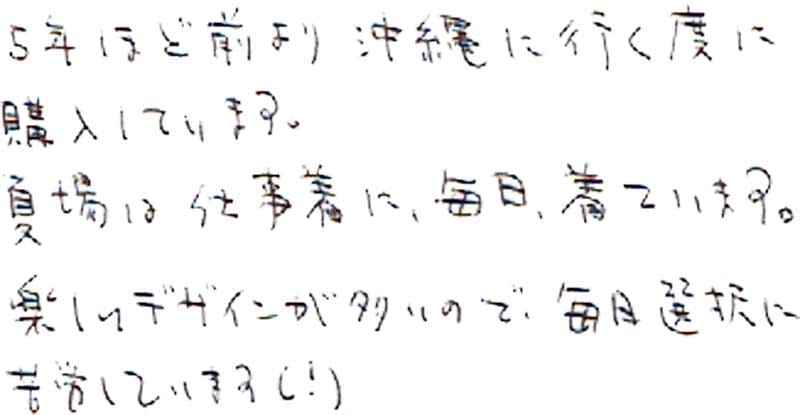 5年ほど前より沖縄に行く度に
購入しています。
夏場は仕事着に、毎日、着ています。
楽しいデザインが多いので、毎日選択に
苦労しています(!)